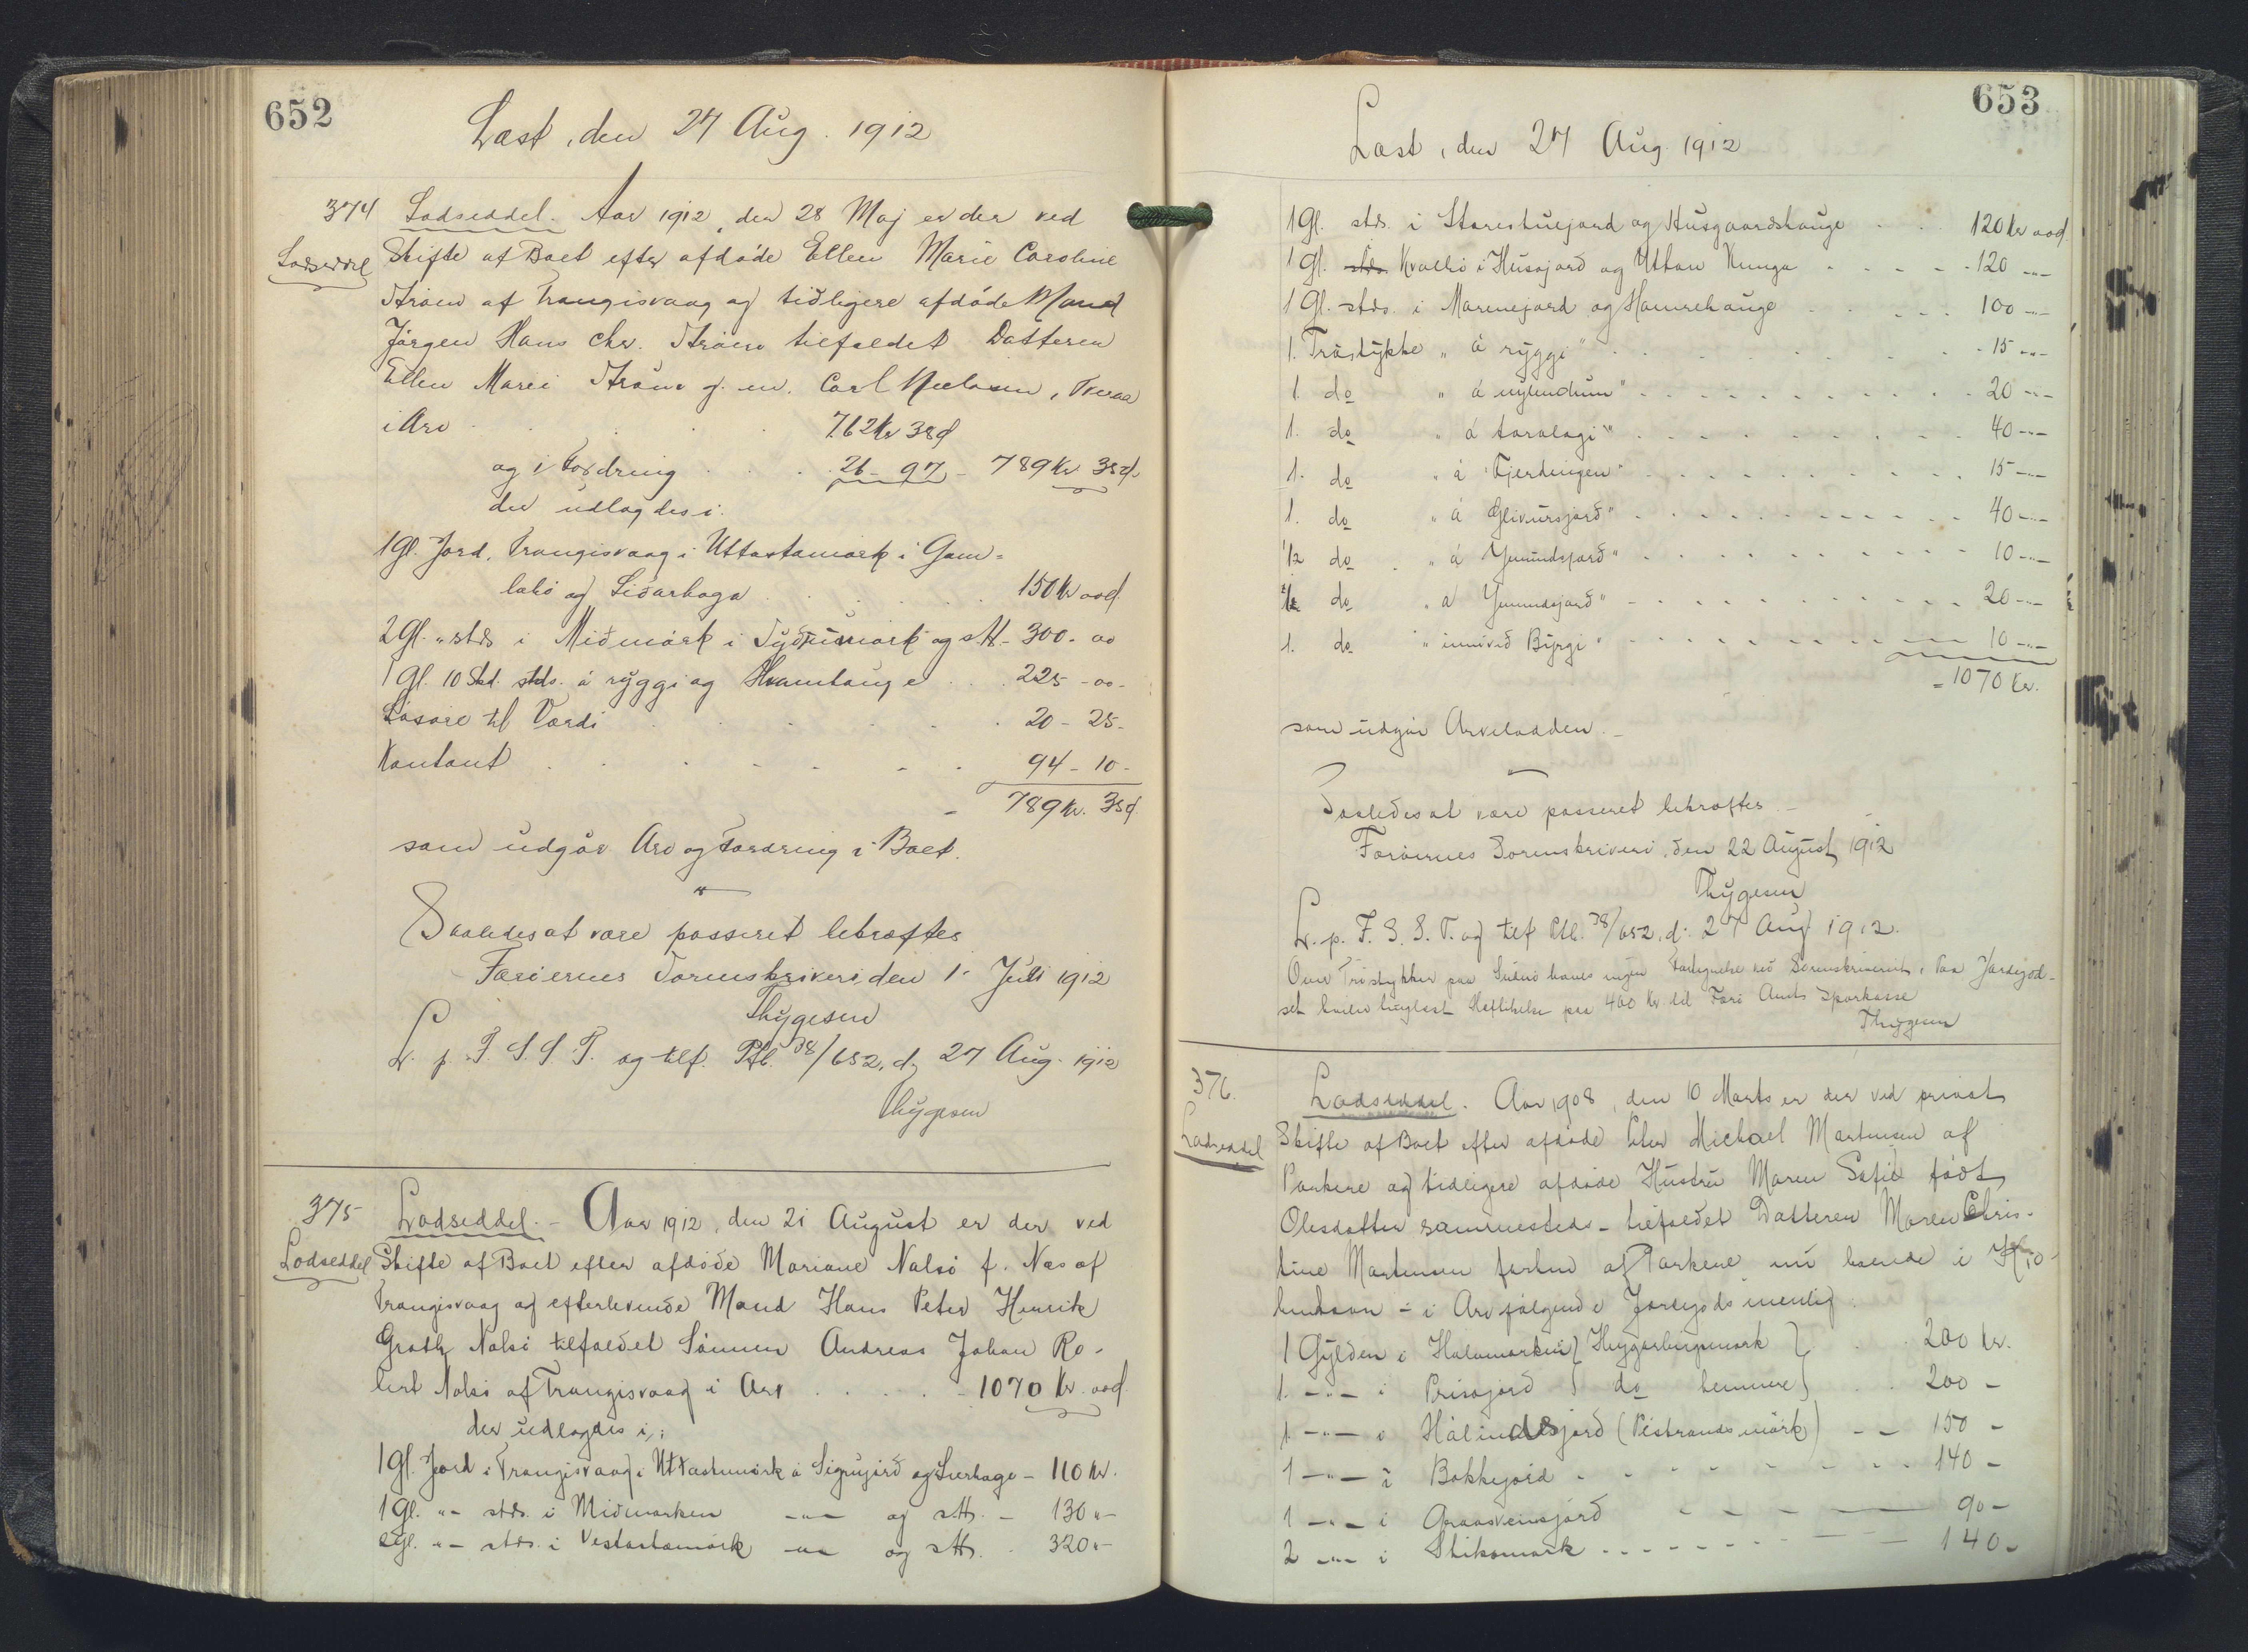 652
Læst, den 27 Aug. 1912
374 Lodseddel. Aar 1912, den 28 Maj er der ved
Lodseddel Skifte af Boet efter afdöde Ellen Marie Caroline
Ström af Trangisvaag og tidligere afdöde Mand
Jörgen Hans Chr. Ström tilfaldet Datteren
Ellen Marie Ström g. m. Carl Nielsen, Tveraa
i Arv 762 Kr 38 d
og i Fordring 26 - 97 - 789 Kr 35 d.
der udlagdes i:
1 Gl. Jord, Trangisvaag i Uttastamørk i Gam-
labø og Sidarhaga 150 Kr ood.
2 Gl. " stds i Miðmørk i og stH. - 300 - oo
1 Gl. 10 Skd. stds. á ryggi og Hvamhauge 225 - oo -
Lösøre til Værdi 20 - 25 -
Kontant 94 - 10 -
789 Kr. 35 d.
som udgör Arv og Fordring i Boet.
Saaledes at være passeret bekræftes
Færøernes Sorenskriveri, den 1. Juli 1912
Thygesen
L. p. F. S. S. T. og tilf. Ptb. 38/652, d. 27 Aug. 1912
Thygesen
375 Lodseddel. - Aar 1912, den 21 August er der ved
Lodseddel Skifte af Boet efter afdöde Mariane Nalsö f. Næs af
Trangisvaag og efterlevende Mand Hans Peter Henrik
Groth Nolsö tilfaldet Sönnen Andreas Johan Ro-
bert Nolsö af Trangisvaag i Arv - 1070 Kr. ood.
der udlagdes i:
1 Gl. Jord i Trangisvaag i Uttastumörk á Signujörð og Lierhage - 110 Kr.
1 Gl. "- stds. i Miðmarken -"- og stH. - 130 "-
2 Gl. "- stds. i Vestastamörk -"- og stH. - 320 "-
653
Læst, den 27 Aug 1912
1 Gl. stds. i Storestuejord og Husgaardshauge 120 Kr ood.
1 Gl. stds. Kvalbø i Húsajørð og Uttan Kunga 120 -"-
1 Gl. stds. i Marnejord og Hamrehauge 100 -"-
1. Tröstykke " á ryggi" 15 -"-
1. do " á nylendum" 20 -"-
1. do " á toralagi" 40 -"-
1. do " á Fjerdingen" 15 -"-
1. do " á Glivursjørð" 40 -"-
1/2 do " á Ymundsjørð" 10 -"-
do " á Ymundsjørð" 20 -"-
1. do " innivið Byrgi" 10 -"-
= 1070 Kr.
som udgör Arvelodden. -
Saaledes at være passeret bekræftes. -
Færöernes Sorenskriveri, den 22 August 1912
Thygesen
L. p. F. S. S. T. og tilf. Ptb. 38/652, d. 27 Aug 1912.
Over Tröstykker paa Suderö haves ingen Fortegnelse ved Sorenskriveriet. Paa Jordegod-
set hviler tinglæst Hæftelse paa 400 Kr. til Færø Amts Sparkasse
Thygesen
376. Lodseddel. Aar 1908, den 10 Marts er der ved privat
Lodseddel Skifte af Boet efter afdöde Peter Michael Martensen af
Porkere og tidligere afdöde Hustru Maren Sofie födt
Olesdatter sammesteds - tilfaldet Datteren Maren Chris-
tine Martensen forhen af Porkere nu boende i Kjö-
benhavn - i Arv fölgende Jordegods nemlig:
1 Gylden i Halamarken } } 200 Kr.
1. -"- i Prisajörd do 200 -
1 -"- i Hálindesjørð (Vistrandsmørk) - 150 -
1 -"- i Bakkejörd 140 -
1 -"- i Graasveinsjörð 90 -
2 -"- i Stiksmørk 140 -